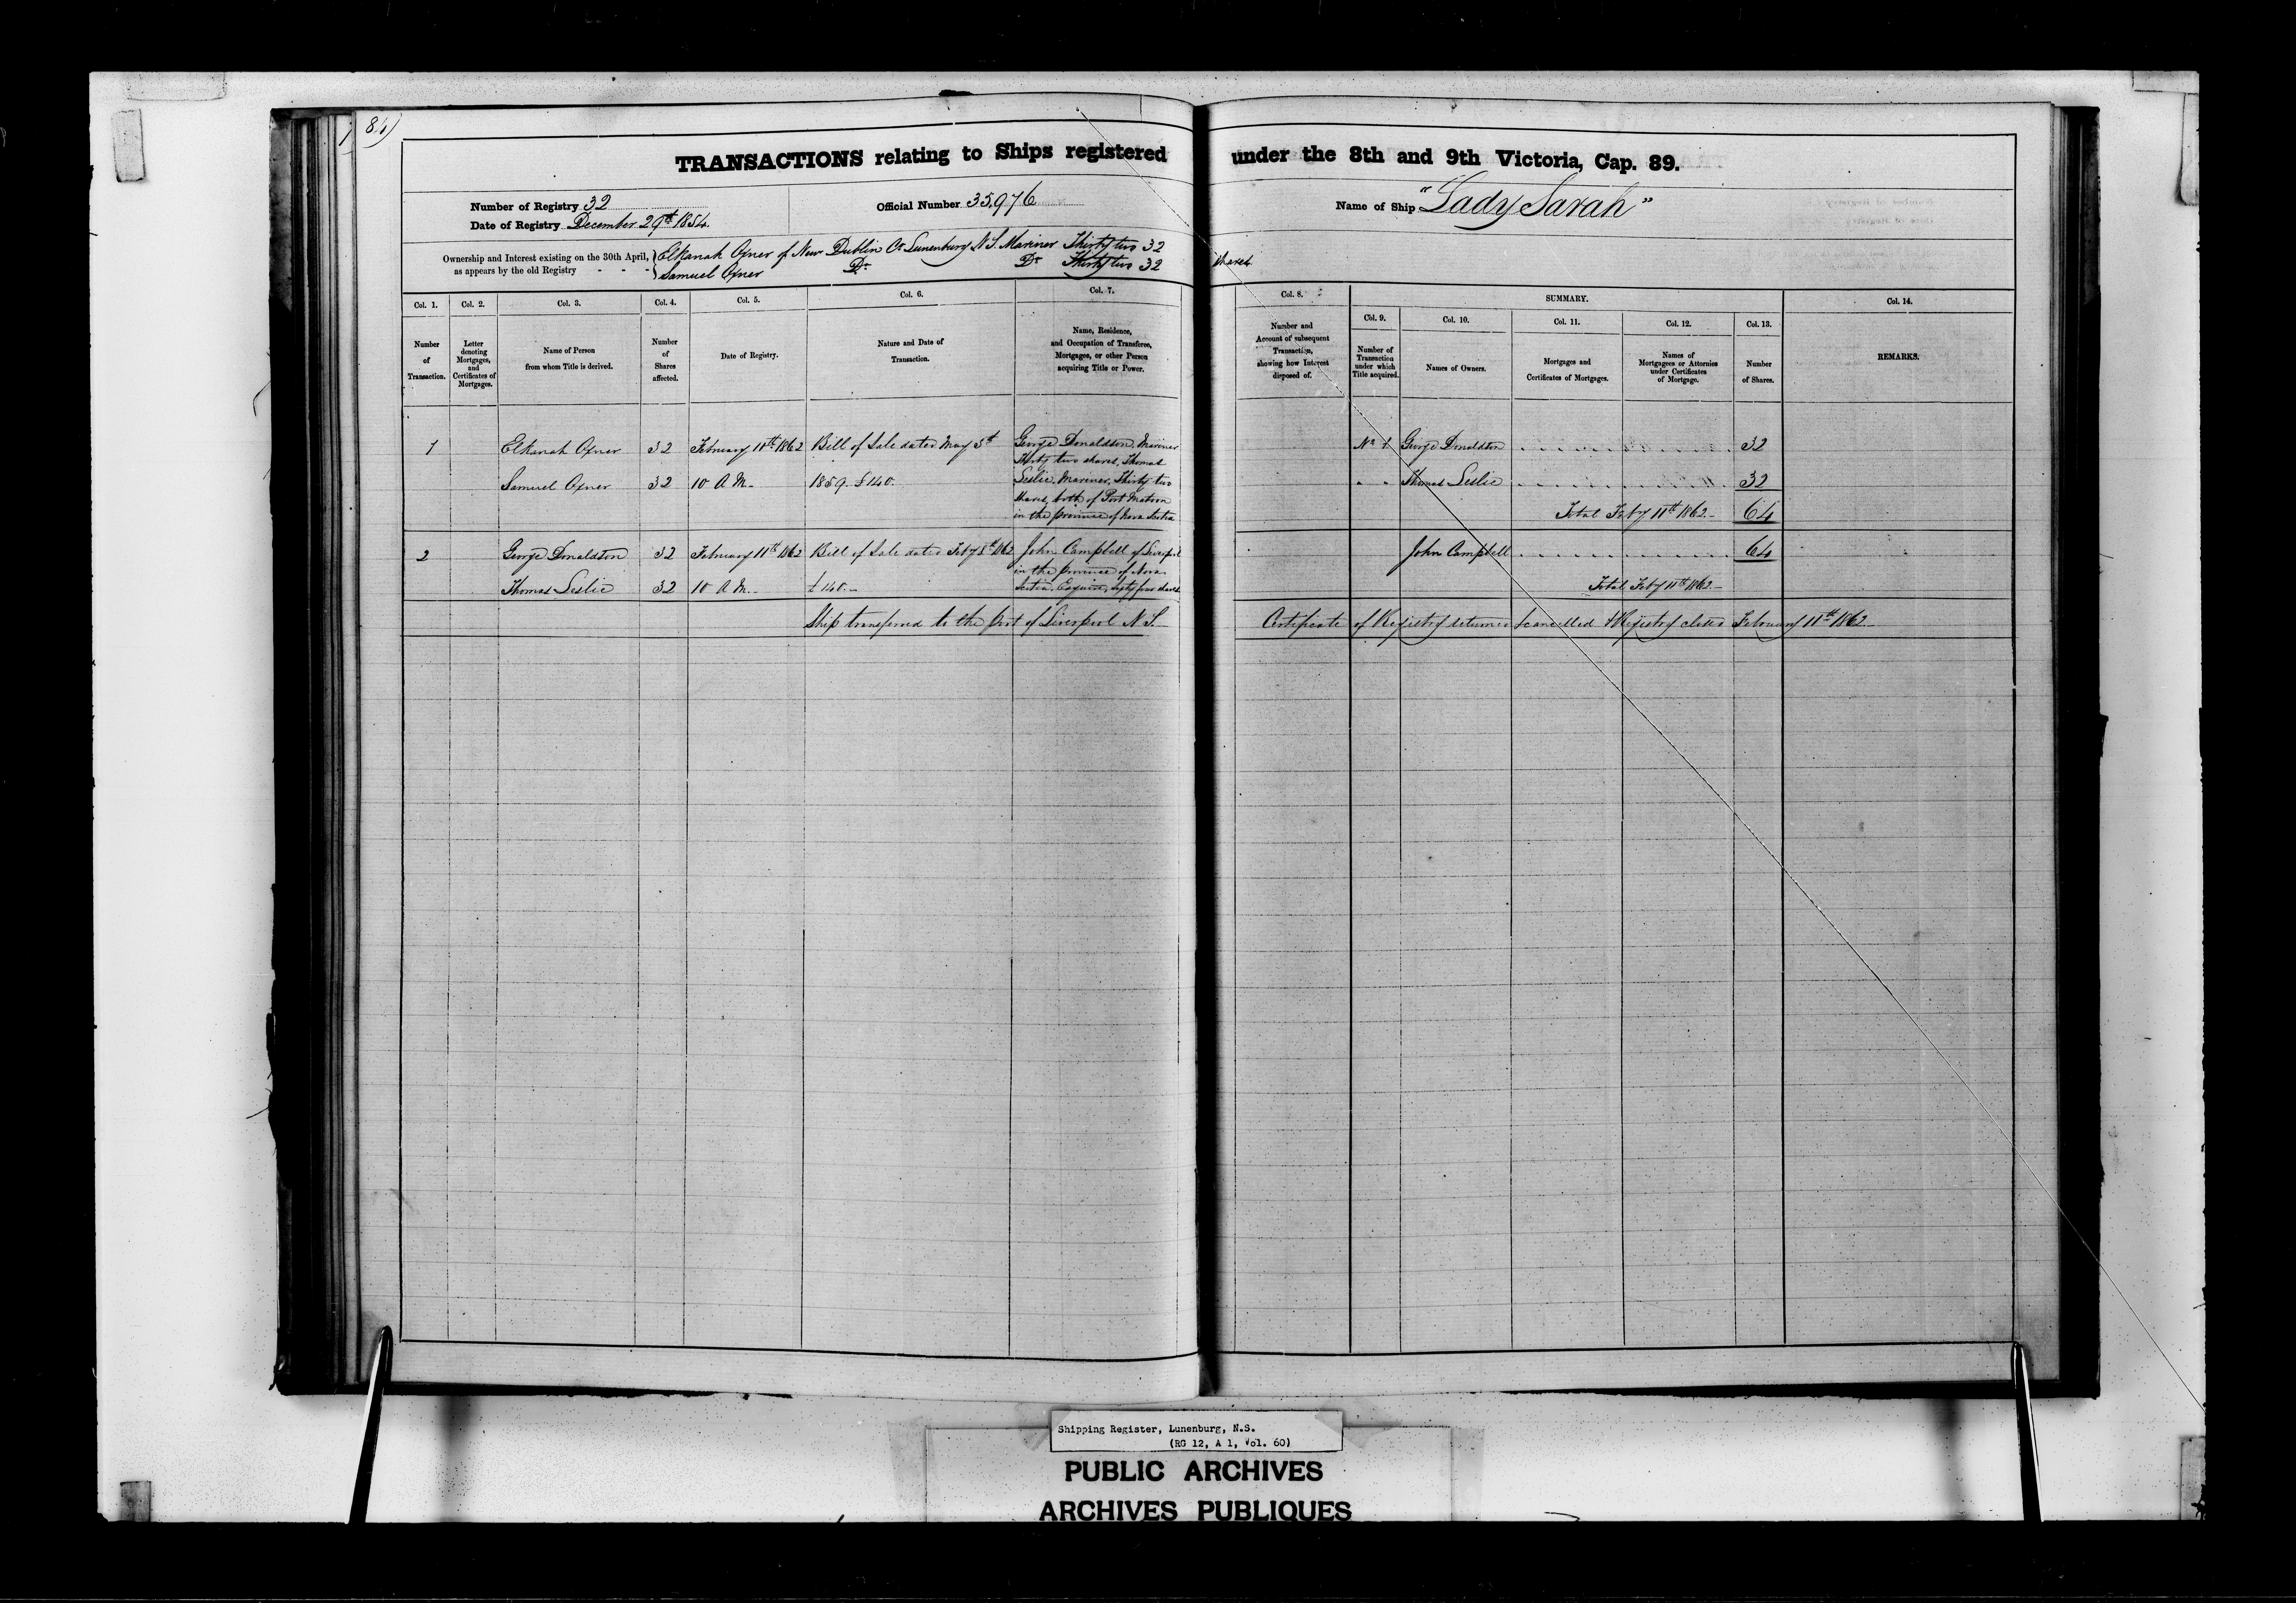 84)
TRANSACTIONS relating to Ships registered under the 8th and 9th Victoria, Cap. 89.
Number of Registry 32
Date of Registry December 29th 1854
Official Number 35,976
Name of Ship "Lady Sarah"
Ownership and Interest existing on the 30th April,
as appears by the old Registry - - -
Elkanah Oxner of New Dublin Co Lunenburg N.S. Mariner Thirty two 32 shares
Samuel Oxner Do Do Thirty two 32
Col. 1. Col. 2. Col. 3. Col. 4. Col. 5. Col. 6. Col. 7. Col. 8. SUMMARY. Col. 14.
Col. 9. Col. 10. Col. 11. Col. 12. Col. 13.
Number
of
Transaction.
Letter
denoting
Mortgages,
and
Certificates of
Mortgages.
Name of Person
from whom Title is derived.
Number
of
Shares
affected.
Date of Registry.
Nature and Date of
Transaction.
Name, Residence,
and Occupation of Transferee,
Mortgagee, or other Person
acquiring Title or Power.
Number and
Account of subsequent
Transaction,
showing how Interest
disposed of.
Number of
Transaction
under which
Title acquired.
Names of Owners.
Mortgages and
Certificates of Mortgages.
Names of
Mortgagees or Attornies
under Certificates
of Mortgage.
Number
of Shares.
REMARKS.
1 Elkanah Oxner 32 February 11th 1862 Bill of Sale dated May 3d
Samuel Oxner 32 10 A.M. 1859. £140.
George Donaldson, Mariner
Thirty two shares, Thomas
Leslie, Mariner, Thirty two
shares, both of Port Matoon
in the province of Nova Scotia
No 1 George Donaldson 32
" " Thomas Leslie 32
Total Feby 11th 1862 64
2 George Donaldson 32 February 11th 1862 Bill of Sale dated Feby 8th 1862
Thomas Leslie 32 10 A.M. £140.
John Campbell of Liverpool
in the province of Nova
Scotia, Esquire, Sixty four shares
John Campbell 64
Total Feby 11th 1862
Ship transferred to the Port of Liverpool N.S. Certificate of Registry returned & cancelled & Registry closed February 11th 1862
Shipping Register, Lunenburg, N.S.
(RG 12, A 1, Vol. 60)
PUBLIC ARCHIVES
ARCHIVES PUBLIQUES